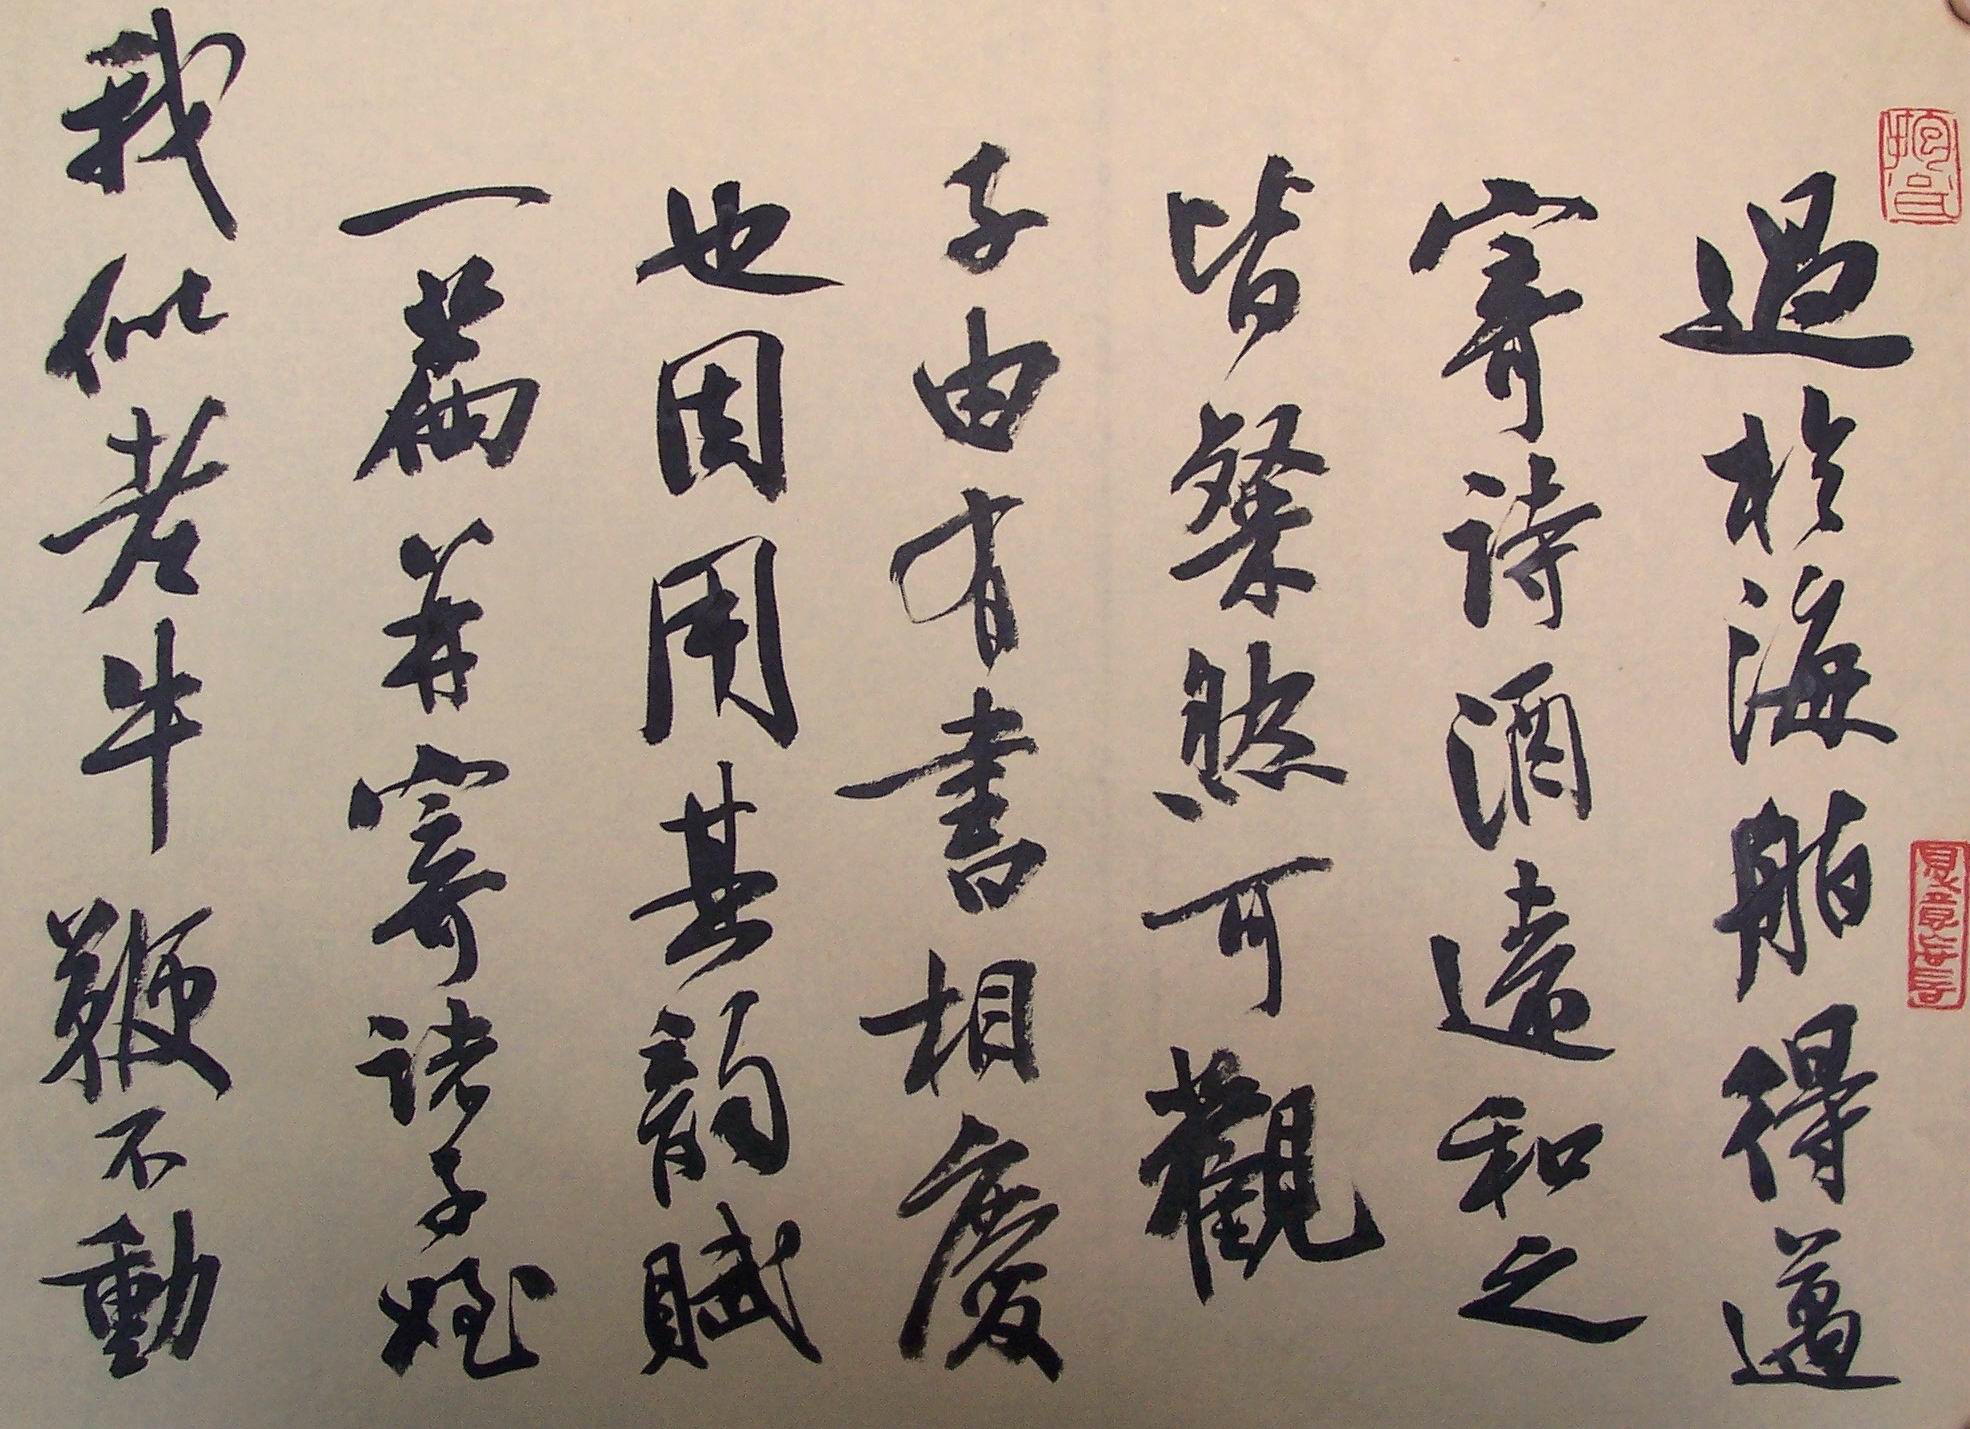 過於海舶得邁
寄詩酒遠和之
皆粲然可觀
子由有書相慶
也因用其韻賦
一篇并寄諸子姪
我似老牛鞭不動